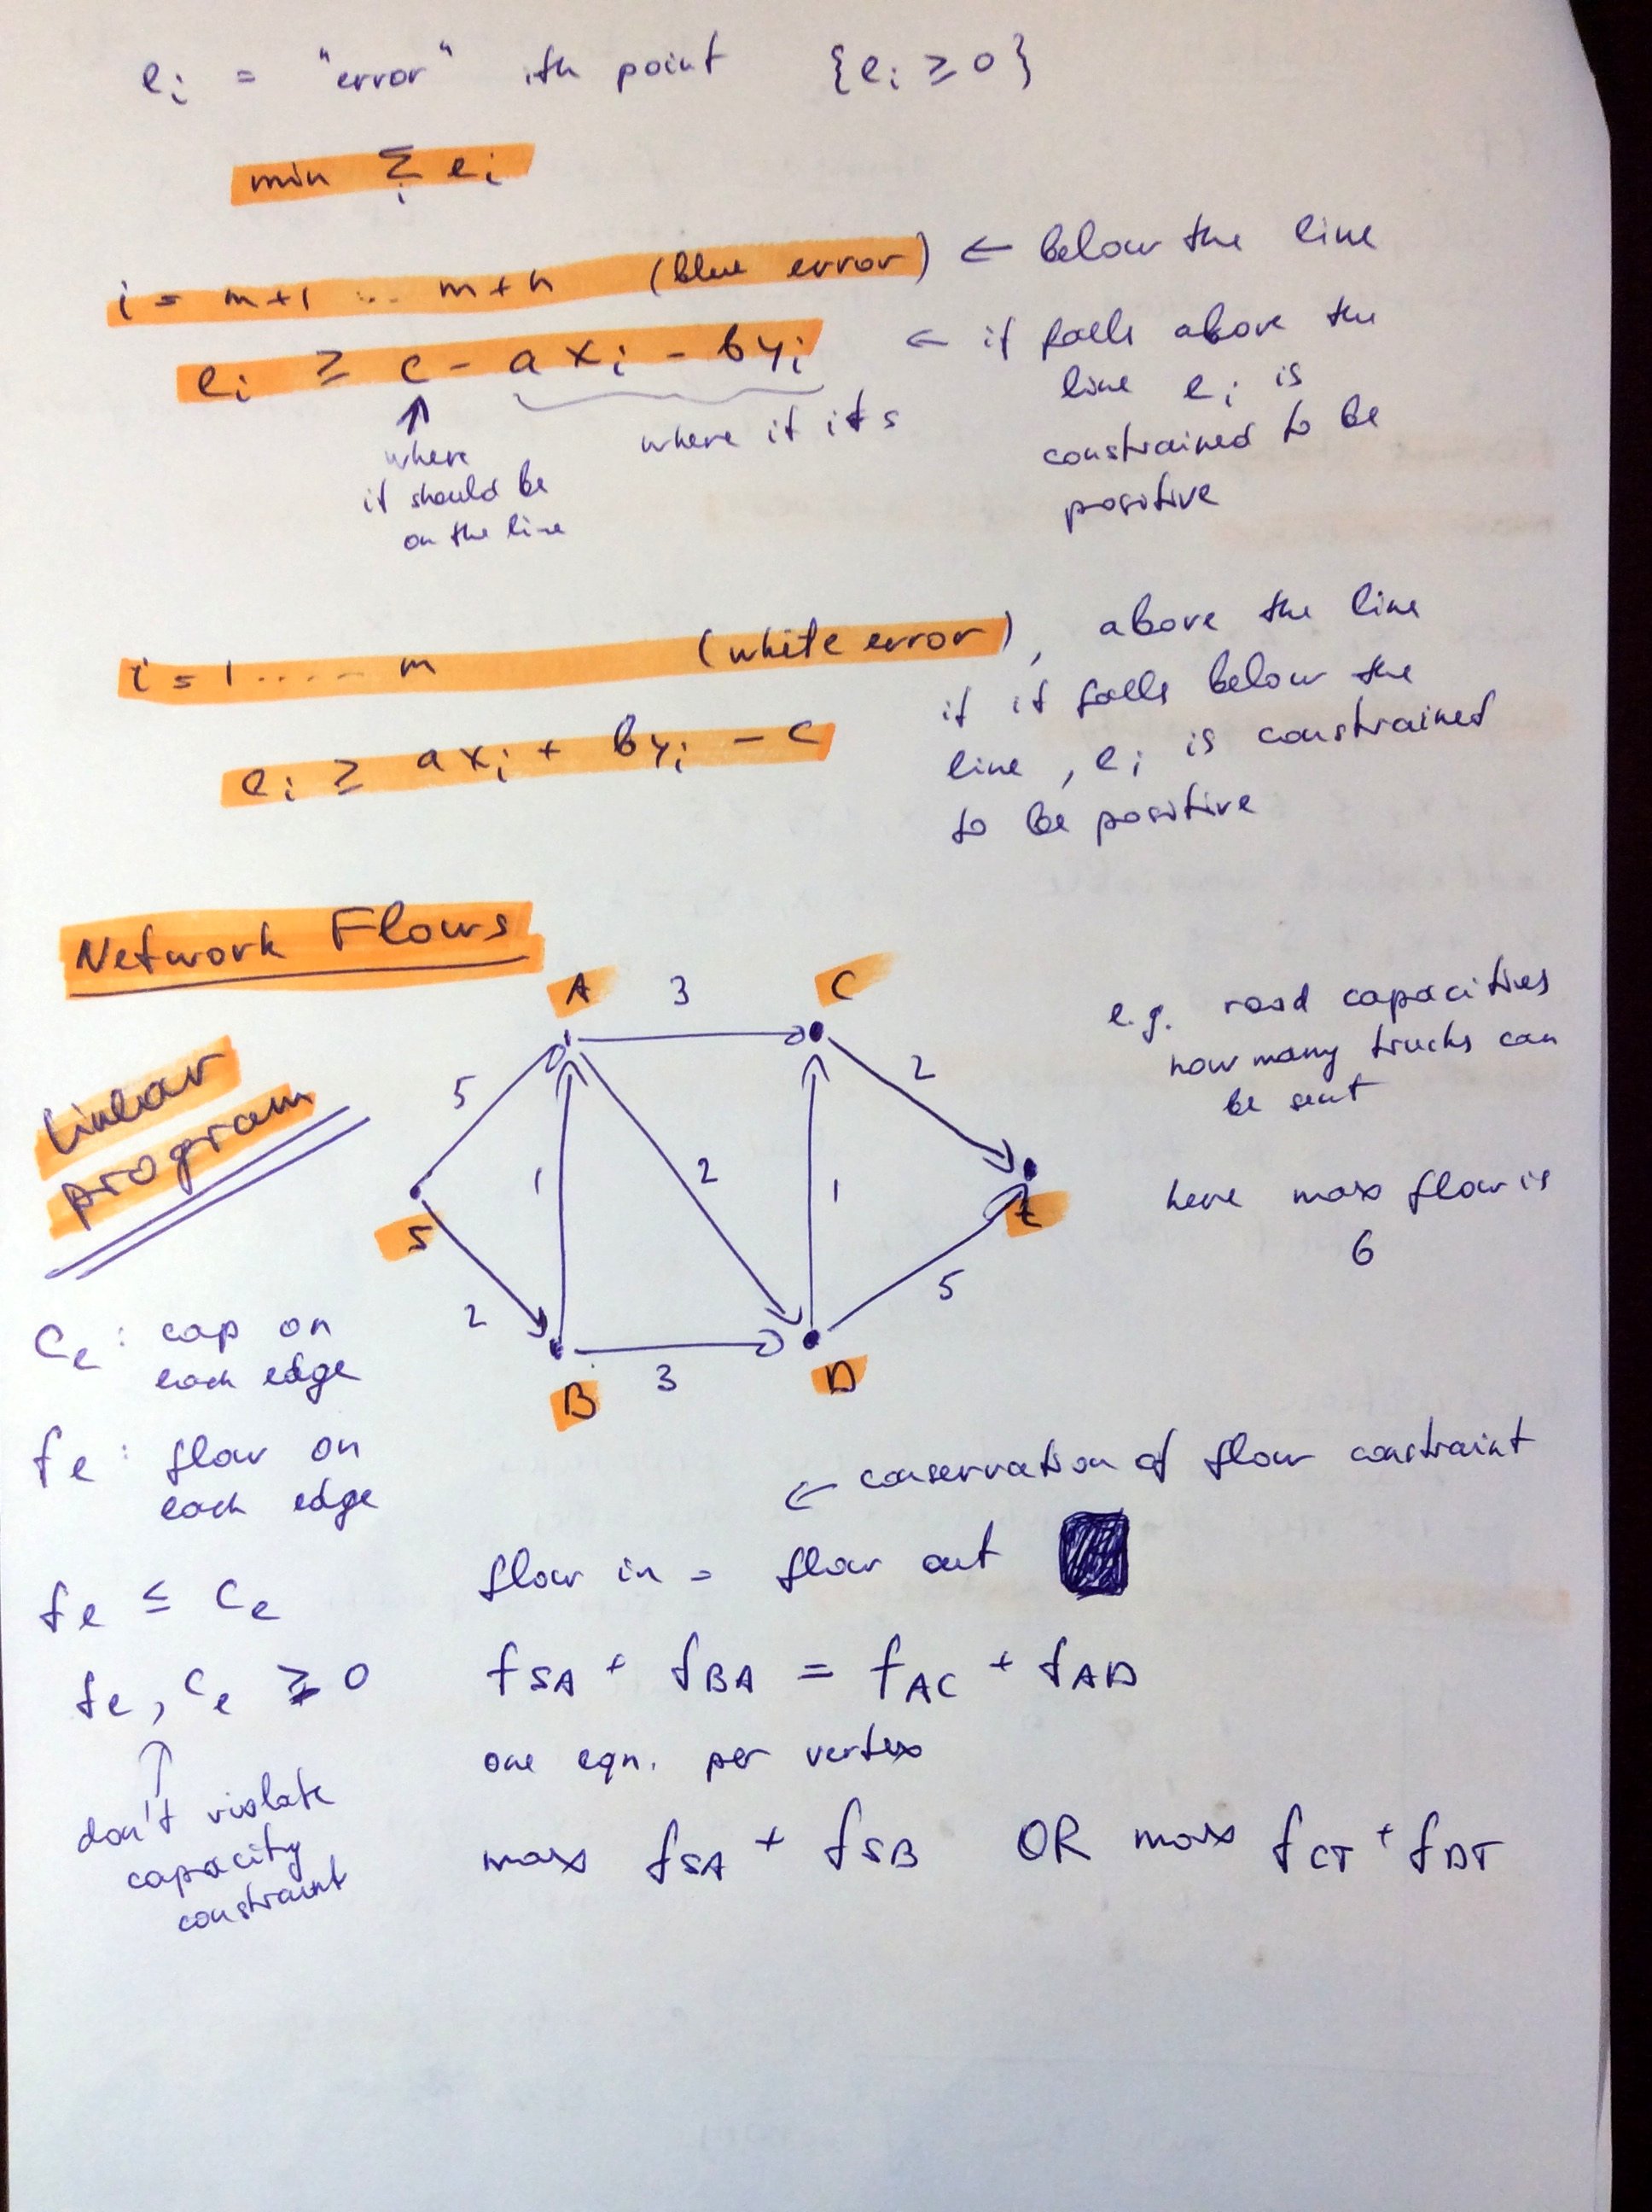 e_i = "error" ith point {e_i ≥ 0}
min Σ_i e_i
i = m+1 ... m+n (blue error) ← below the line
e_i ≥ c - a x_i - b y_i ← if falls above the
line e_i is
constrained to be
positive
↑
where
it should be
on the line
where it its
i = 1 ..... m (white error), above the line
if it falls below the
line, e_i is constrained
to be positive
e_i ≥ a x_i + b y_i - c
Network Flows
Linear
program
A 3 C
5 1 2 1 2
S t
2 3 5
B D
e.g. road capacities
how many trucks can
be sent
here max flow is
6
C_e : cap on
each edge
f_e : flow on
each edge
f_e ≤ C_e
f_e, C_e ≥ 0
↑
don't violate
capacity
constraint
← conservation of flow constraint
flow in = flow out
f_SA + f_BA = f_AC + f_AD
one eqn. per vertex
max f_SA + f_SB OR max f_CT + f_DT